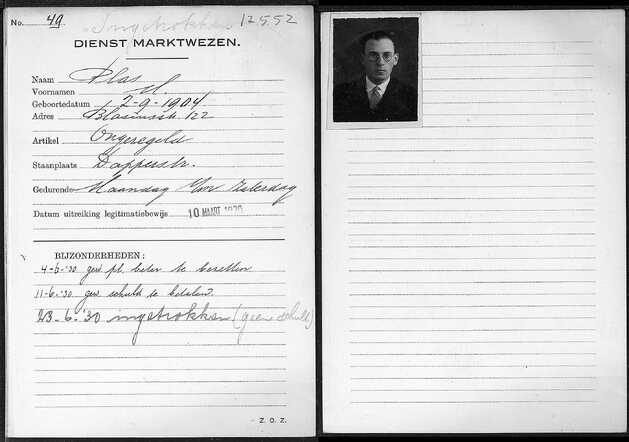 No. 49 Ingetrokken 12 5.52
DIENST MARKTWEZEN.
Naam Plas
Voornamen M.
Geboortedatum 2-9-1904
Adres Blasiusstr. 122
Artikel Ongeregeld
Staanplaats Dapperstr.
Gedurende Maandag t/m Zaterdag
Datum uitreiking legitimatiebewijs 10 MAART 1930
BIJZONDERHEDEN:
4-6-'30 gew pl. beter te bezetten
11-6-'30 gew. schuld te betalen.
23-6-'30 ingetrokken (geen schuld)
Z. O. Z.